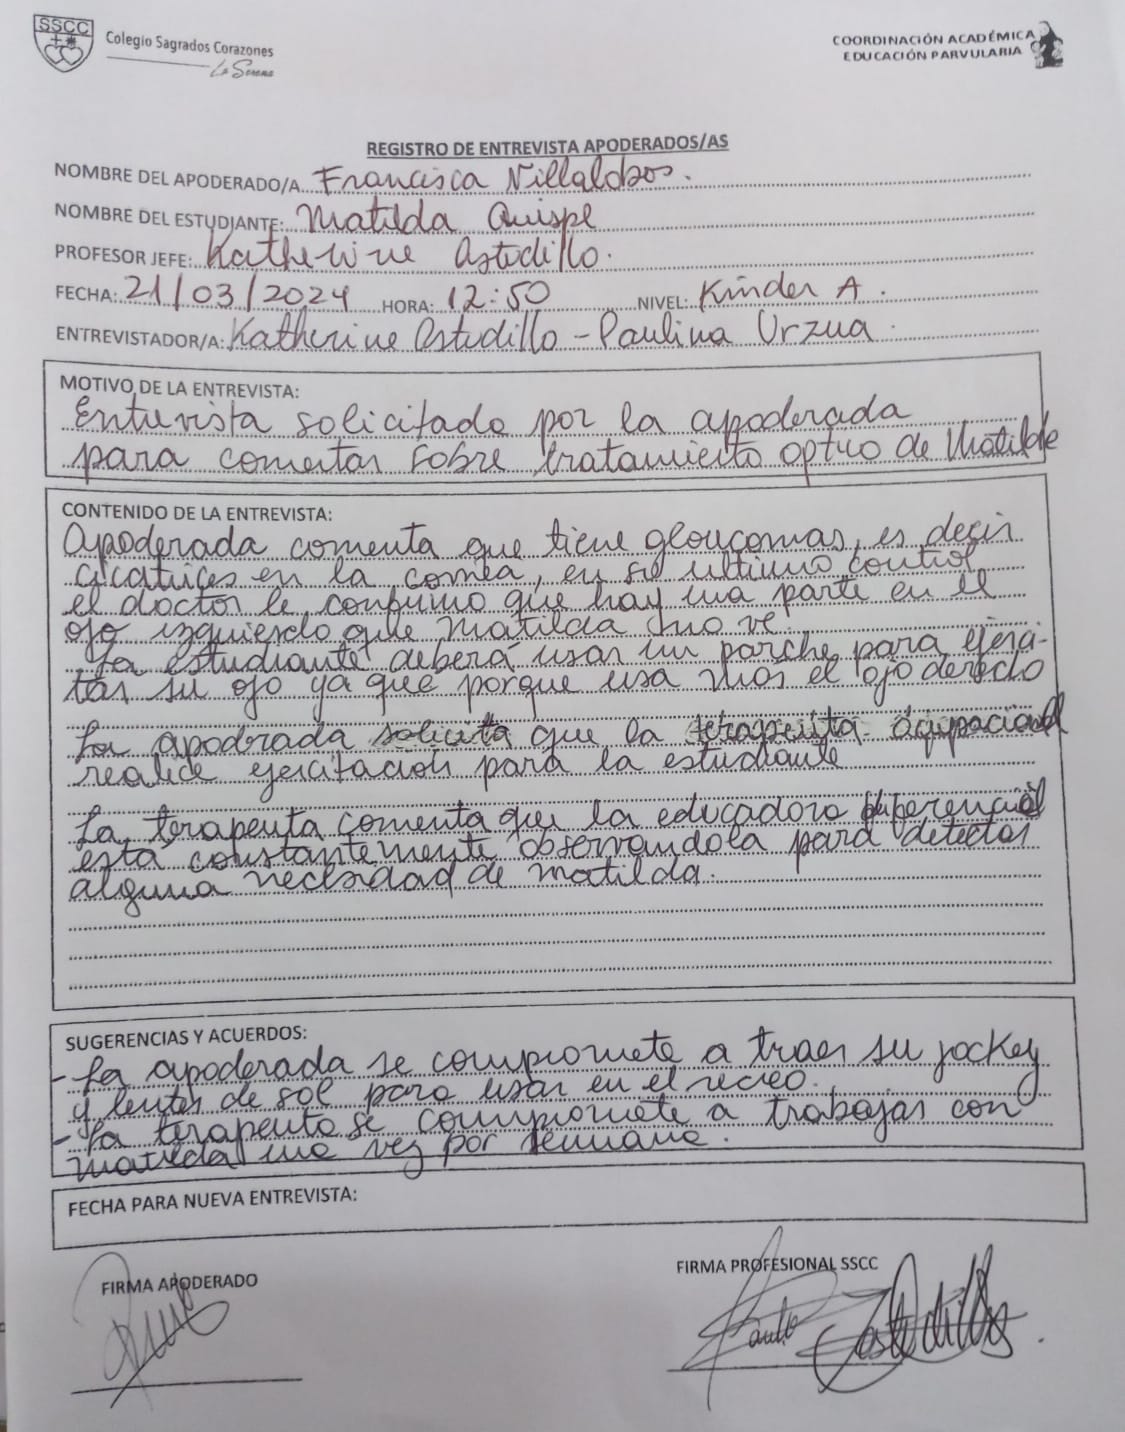 SSCC
Colegio Sagrados Corazones
La Serena
COORDINACIÓN ACADÉMICA
EDUCACIÓN PARVULARIA
REGISTRO DE ENTREVISTA APODERADOS/AS
NOMBRE DEL APODERADO/A Francisca Villalobos.
NOMBRE DEL ESTUDIANTE: Matilda Quispe
PROFESOR JEFE: Katherine Astudillo.
FECHA: 21/03/2024 HORA: 12:50 NIVEL: Kinder A.
ENTREVISTADOR/A: Katherine Astudillo - Paulina Urzua.
MOTIVO DE LA ENTREVISTA:
Entrevista solicitado por la apoderada
para comentar sobre tratamiento optico de Matilde
CONTENIDO DE LA ENTREVISTA:
Apoderada comenta que tiene gloucomas, es decir
cicatrices en la cornea, en su ultimo control
el doctor le confirmo que hay una parte en el
ojo izquierdo que Matilda no ve.
La estudiante deberá usar un parche para ejerci-
tar su ojo ya que porque usa mas el ojo derecho
La apodrada solicita que la terapeuta ocupacional
realice ejercitación para la estudiante
La terapeuta comenta que la educadora diferencial
está constantemente observandola para detectar
alguna necesidad de matilda.
SUGERENCIAS Y ACUERDOS:
- La apoderada se compromete a traer su jockey
y lentes de sol para usar en el recreo.
- La terapeuta se compromete a trabajar con
matilda una vez por semana.
FECHA PARA NUEVA ENTREVISTA:
FIRMA APODERADO
FIRMA PROFESIONAL SSCC